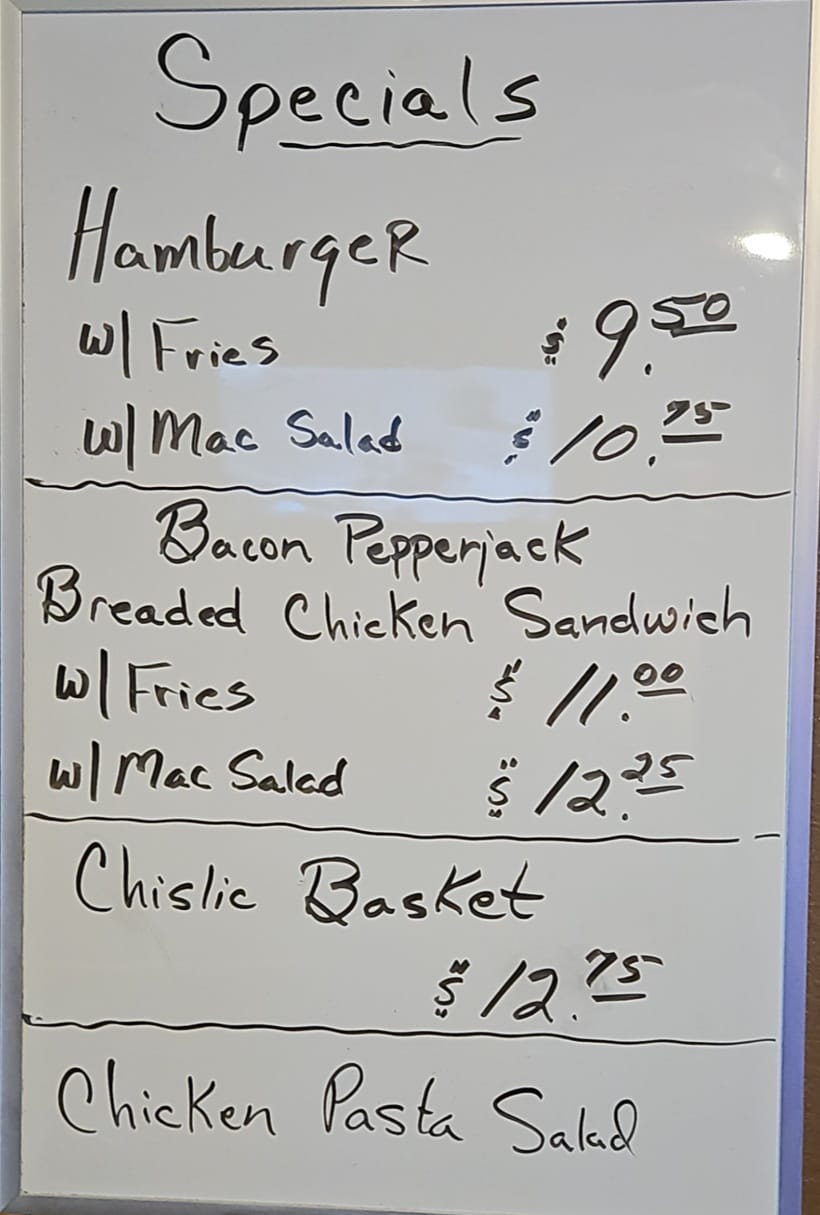 Specials
HamburgeR
w/ Fries $9.50
w/ Mac Salad $10.75
Bacon Pepperjack
Breaded Chicken Sandwich
w/ Fries $11.00
w/ Mac Salad $12.25
Chislic Basket
$12.75
Chicken Pasta Salad